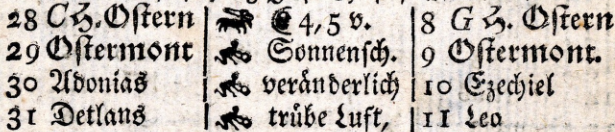 28 C H. Ostern 4, 5 v. 8 G H. Ostern
29 Ostermont Sonnensch. 9 Ostermont.
30 Adonias veränderlich 10 Ezechiel
31 Detlans trübe Luft, 11 Leo